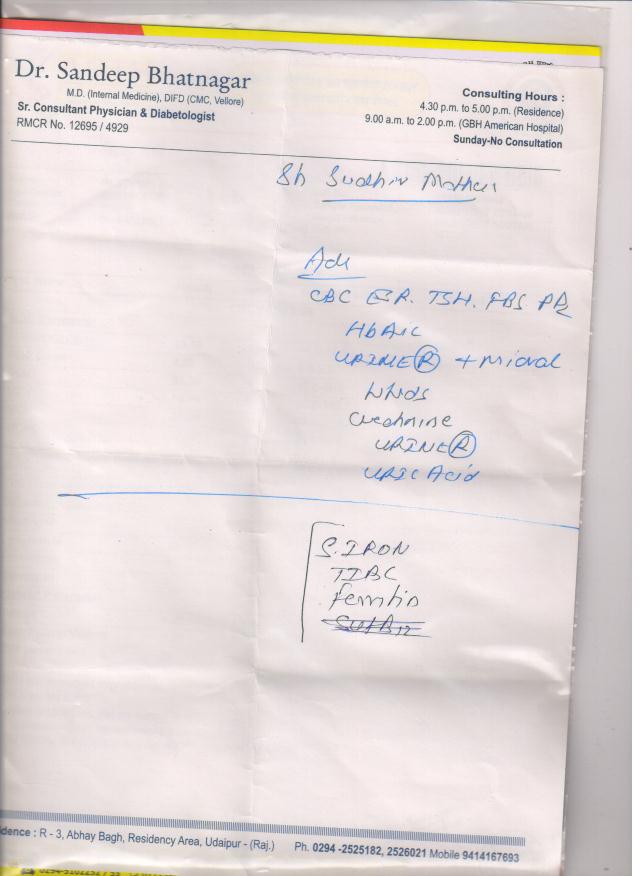 Dr. Sandeep Bhatnagar
M.D. (Internal Medicine), DIFD (CMC, Vellore)
Sr. Consultant Physician & Diabetologist
RMCR No. 12695 / 4929
Consulting Hours :
4.30 p.m. to 5.00 p.m. (Residence)
9.00 a.m. to 2.00 p.m. (GBH American Hospital)
Sunday-No Consultation
Sh Sudhir Mathur
Adv
CBC ESR. TSH. FBS PP2
HbA1C
URINE R + Micral
Lipids
Creatnine
URINE R
URIC Acid
S. IRON
TIBC
Ferritin
dence : R - 3, Abhay Bagh, Residency Area, Udaipur - (Raj.) Ph. 0294 -2525182, 2526021 Mobile 9414167693